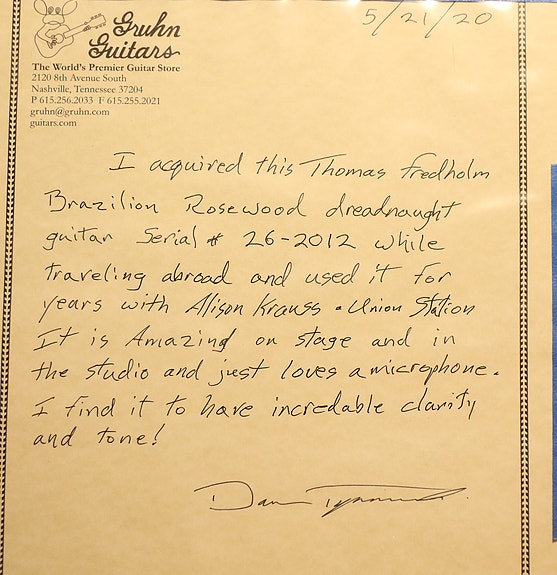 5/21/20
Gruhn
Guitars
The World's Premier Guitar Store
2120 8th Avenue South
Nashville, Tennessee 37204
P 615.256.2033 F 615.255.2021
gruhn@gruhn.com
guitars.com
I acquired this Thomas Fredholm
Brazilion Rosewood dreadnaught
guitar Serial # 26-2012 while
traveling abroad and used it for
years with Alison Krauss & Union Station
It is Amazing on stage and in
the studio and just loves a microphone.
I find it to have incredable clarity
and tone!
Dan Tyminski